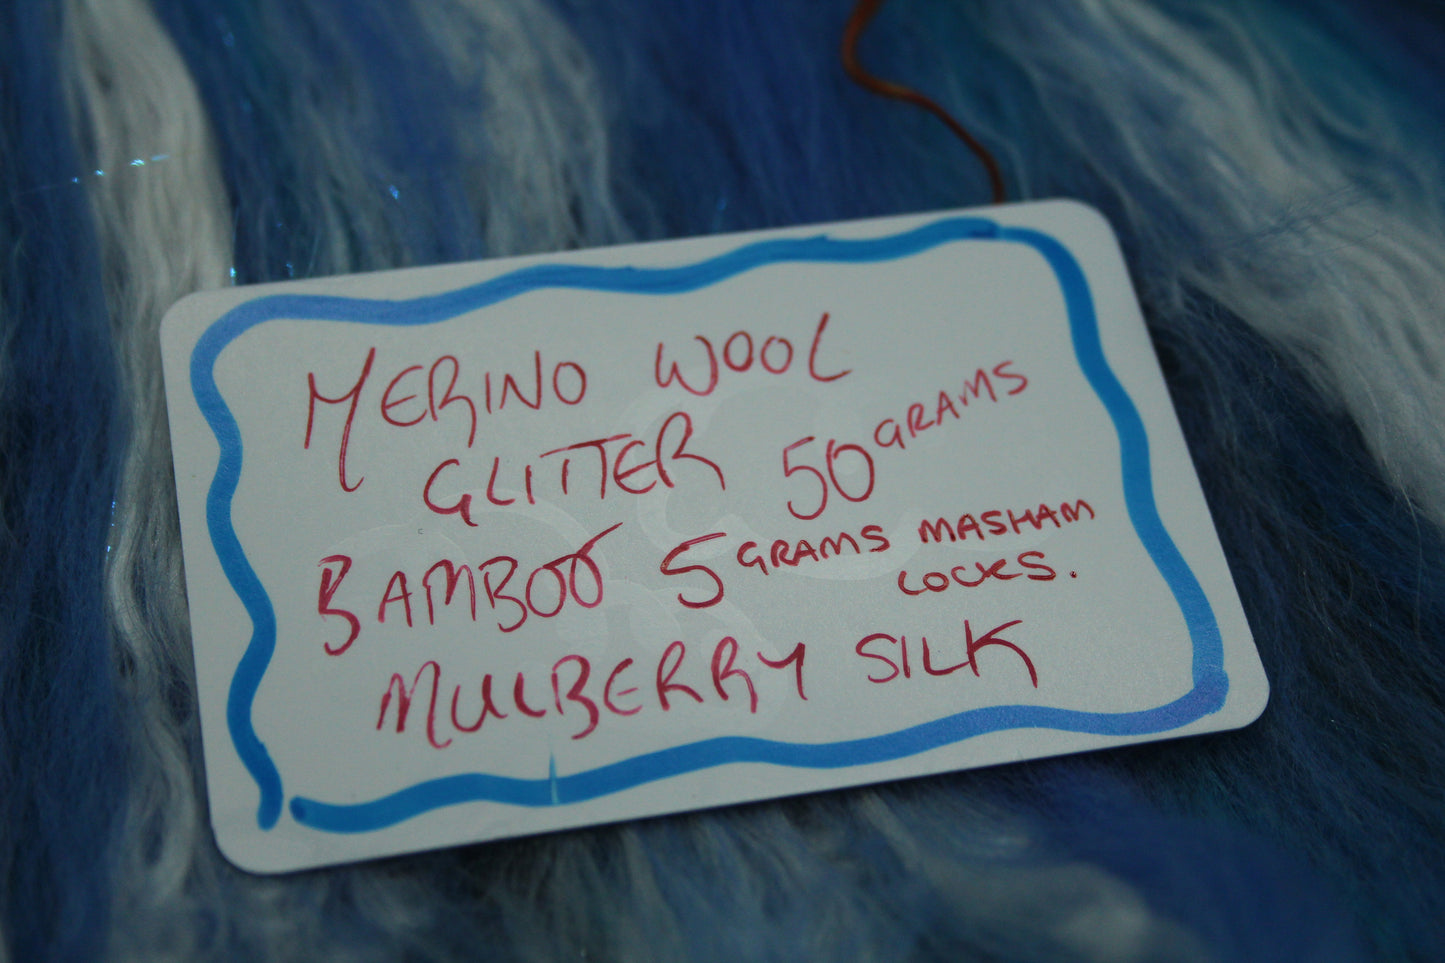 MERINO WOOL
GLITTER 50 GRAMS
BAMBOO 5 GRAMS MASHAM
LOCKS.
MULBERRY SILK